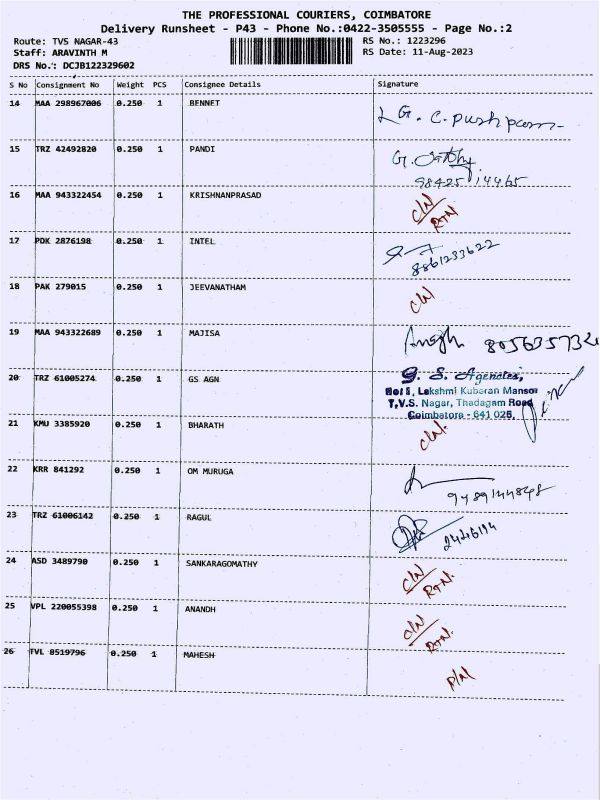 THE PROFESSIONAL COURIERS, COIMBATORE
Delivery Runsheet - P43 - Phone No.:0422-3505555 - Page No.:2
Route: TVS NAGAR-43 RS No.: 1223296
Staff: ARAVINTH M RS Date: 11-Aug-2023
DRS No.: DCJB122329602
S No Consignment No Weight PCS Consignee Details Signature
14 MAA 298967006 0.250 1 BENNET G. C. pushpam
15 TRZ 42492820 0.250 1 PANDI G.
16 MAA 943322454 0.250 1 KRISHNANPRASAD C/N
RTN
17 PDK 2876198 0.250 1 INTEL
8861233622
18 PAK 279015 0.250 1 JEEVANATHAM C/N
19 MAA 943322689 0.250 1 MAJISA
20 TRZ 61005274 0.250 1 GS AGN G. S. Agencies,
Lakshmi Kubaran Manson
T.V.S. Nagar, Thadagam Road
Coimbatore - 641 025,
21 KMU 3385920 0.250 1 BHARATH C/N.
22 KRR 841292 0.250 1 OM MURUGA
9489144848
23 TRZ 61006142 0.250 1 RAGUL
24 ASD 3489790 0.250 1 SANKARAGOMATHY C/N
RTN.
25 VPL 220055398 0.250 1 ANANDH C/N
RTN.
26 TVL 8519796 0.250 1 MAHESH